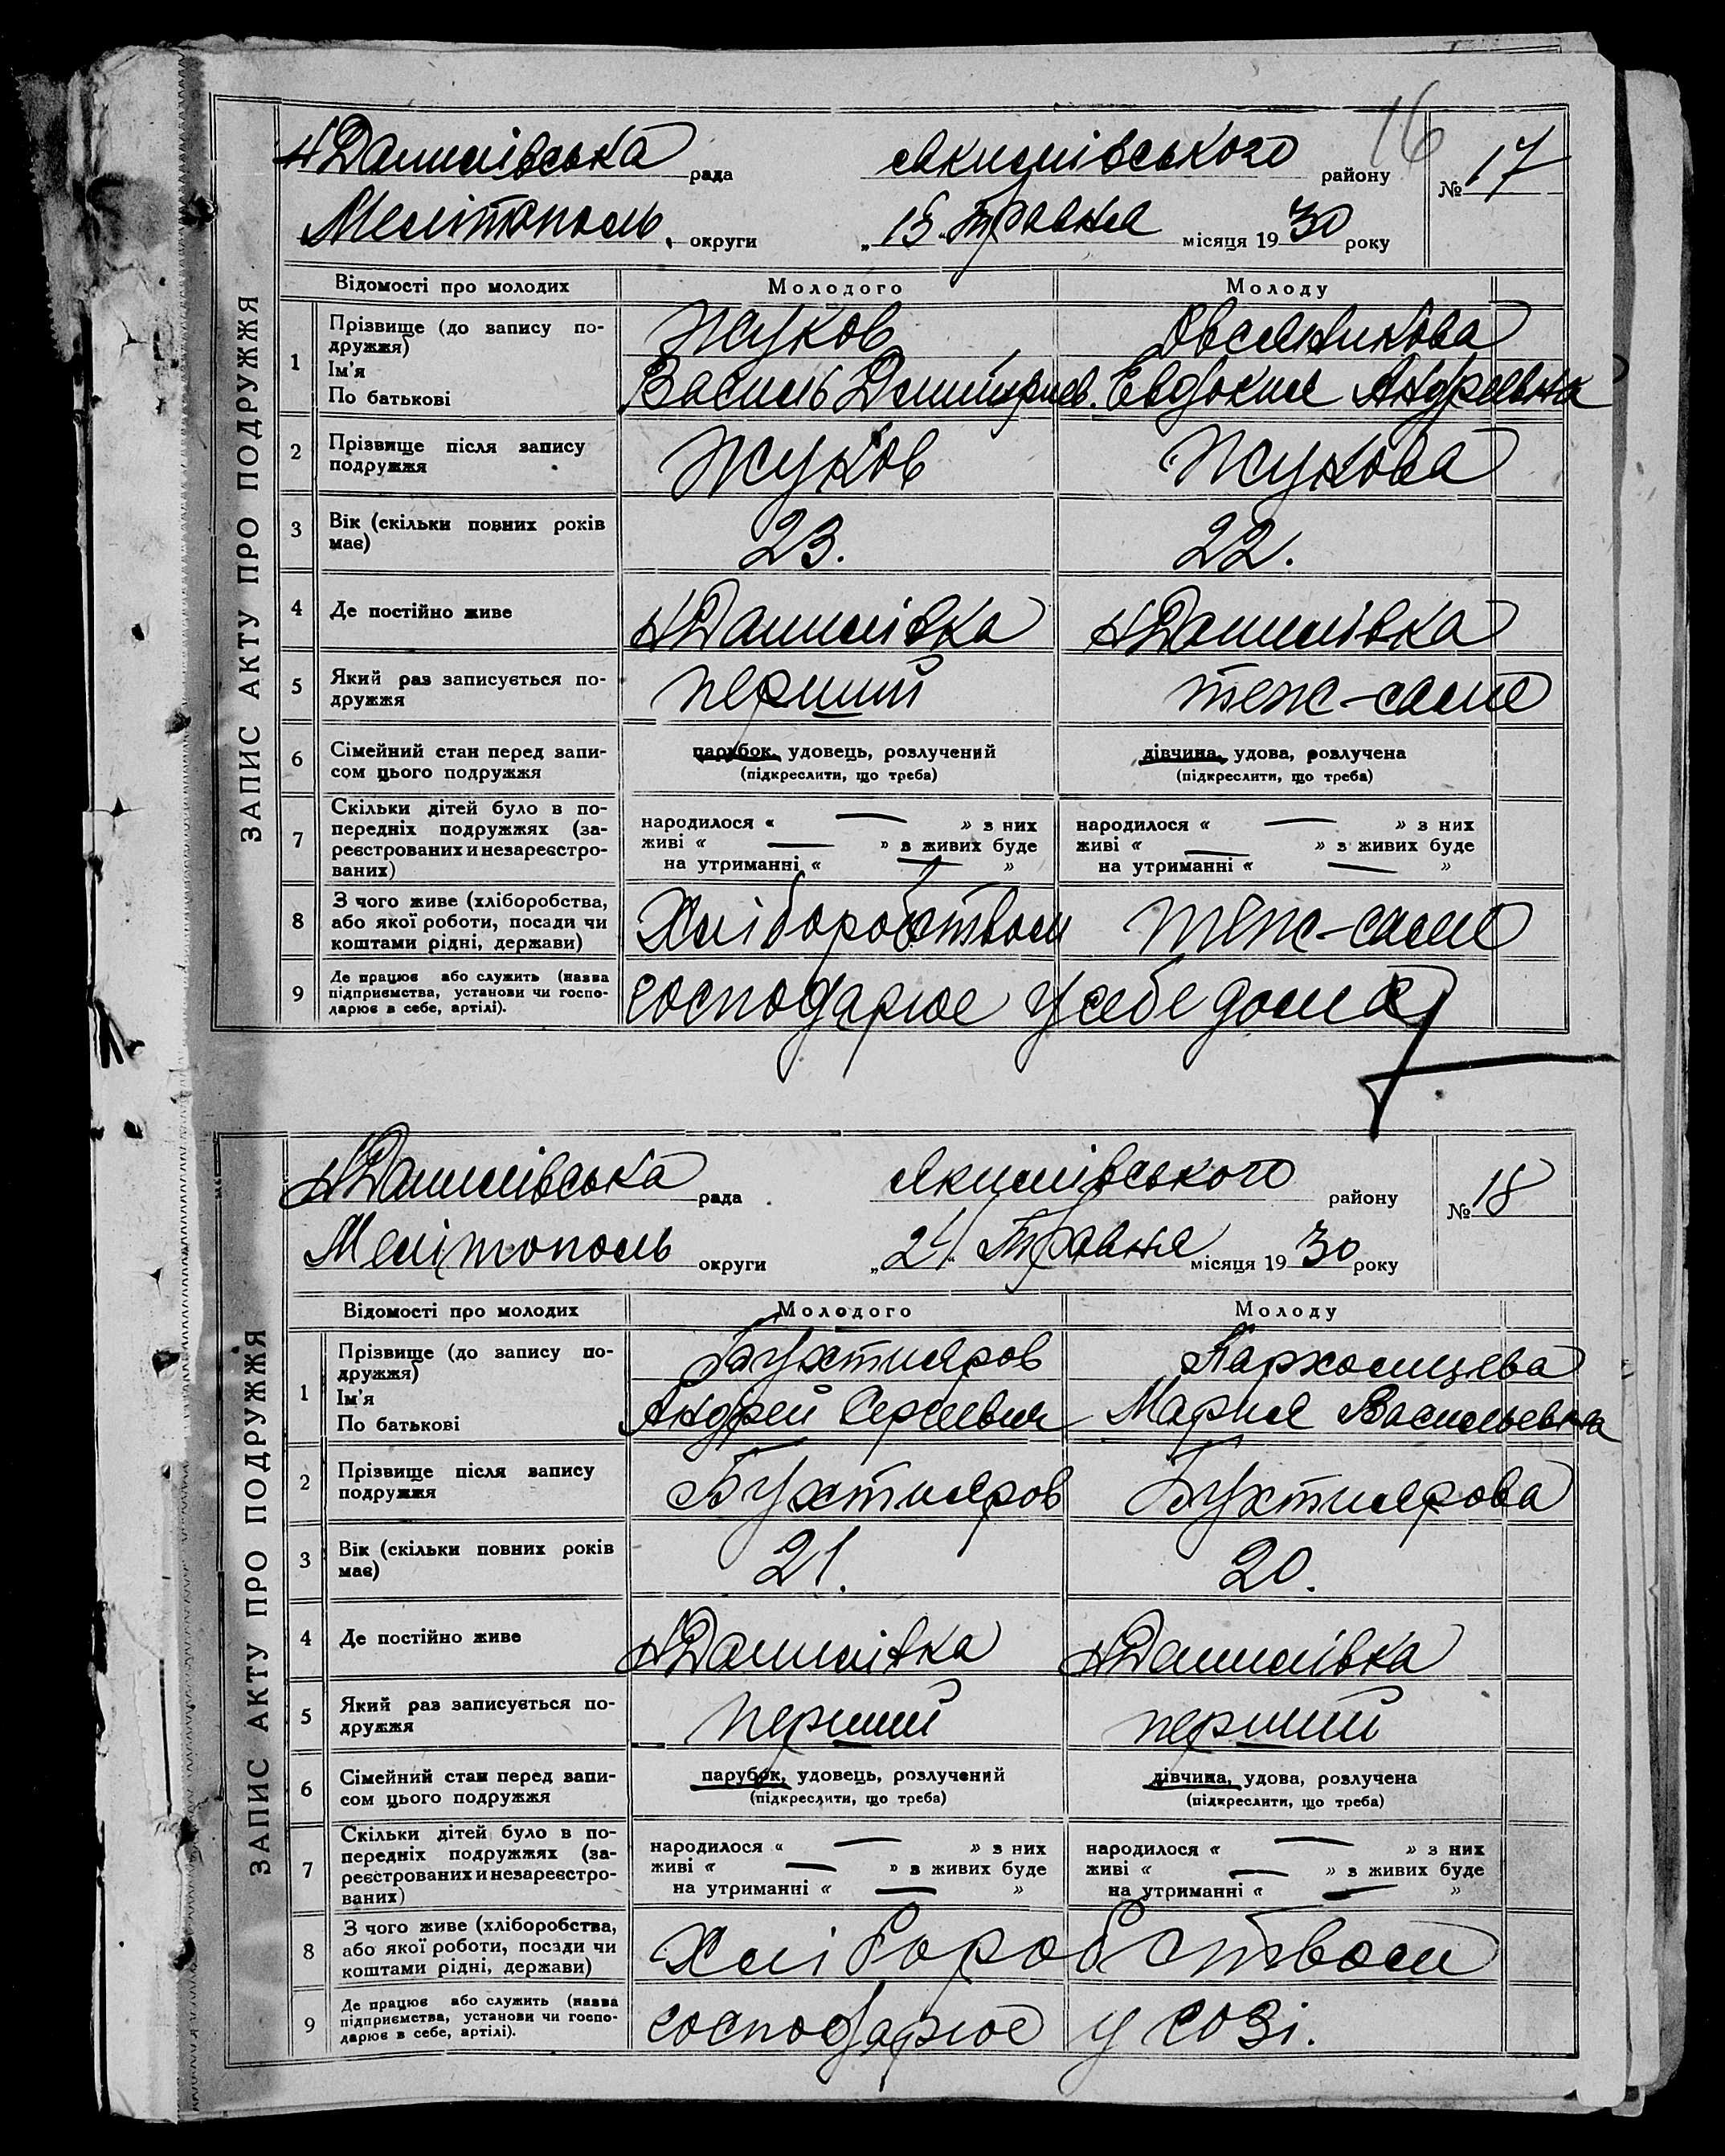 16
Н Данилівська рада Якимівського району № 17
Мелітополь. округи „15" Травня місяця 1930 року
ЗАПИС АКТУ ПРО ПОДРУЖЖЯ
Відомості про молодих Молодого Молоду
1 Прізвище (до запису по- Жуков Овсяникова
дружжя)
Ім'я Василь Дмитриев. Евдокия Андреевна
По батькові
2 Прізвище після запису Жуков Жукова
подружжя
3 Вік (скільки повних років 23. 22.
має)
4 Де постійно живе Н Данилівка Н Данилівка
5 Який раз записується по- перший теж-саме
дружжя
6 Сімейний стан перед запи- парубок, удовець, розлучений дівчина, удова, розлучена
сом цього подружжя (підкреслити, що треба) (підкреслити, що треба)
7 Скільки дітей було в по- народилося « — » з них народилося « — » з них
передніх подружжях (за- живі « — » з живих буде живі « — » з живих буде
реєстрованих и незареєстро- на утриманні « — » на утриманні « — »
ваних)
8 З чого живе (хліборобства, Хліборобством теж-саме
або якої роботи, посади чи
коштами рідні, держави)
9 Де працює або служить (назва господарює у себе дома
підприємства, установи чи госпо-
дарює в себе, артілі).
Н Данилівська рада Якимівського району № 18
Мелітополь округи „21" Травня місяця 1930 року
ЗАПИС АКТУ ПРО ПОДРУЖЖЯ
Відомості про молодих Молодого Молоду
1 Прізвище (до запису по- Бухтияров Пархомцева
дружжя)
Ім'я Андрей Сергеевич Мария Васильевна
По батькові
2 Прізвище після запису Бухтияров Бухтиярова
подружжя
3 Вік (скільки повних років 21. 20.
має)
4 Де постійно живе Н Данилівка Н Данилівка
5 Який раз записується по- перший перший
дружжя
6 Сімейний стан перед запи- парубок, удовець, розлучений дівчина, удова, розлучена
сом цього подружжя (підкреслити, що треба) (підкреслити, що треба)
7 Скільки дітей було в по- народилося « — » з них народилося « — » з них
передніх подружжях (за- живі « — » з живих буде живі « — » з живих буде
реєстрованих и незареєстро- на утриманні « — » на утриманні « — »
ваних)
8 З чого живе (хліборобства, Хліборобством
або якої роботи, посади чи
коштами рідні, держави)
9 Де працює або служить (назва господарює у созі.
підприємства, установи чи госпо-
дарює в себе, артілі).